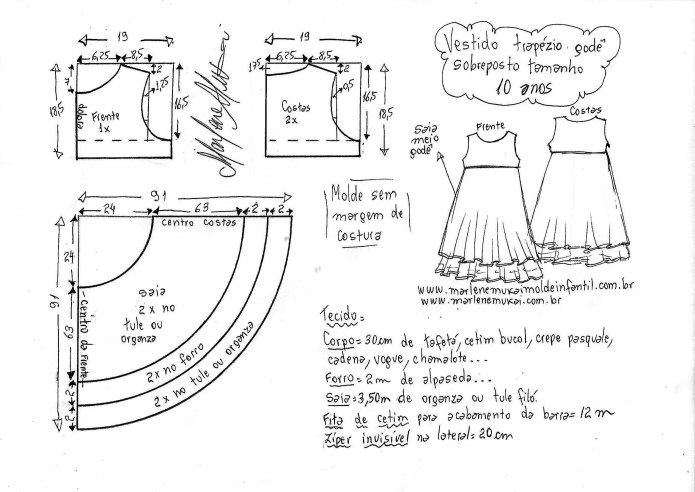 19
6,25
8,5
7
2
1,25
18,5
16,5
dobra
Frente
1x
Marlene Mukai
19
6,25
8,5
1,5
2
0,5
16,5
18,5
Costas
2x
Vestido trapézio godê
sobreposto tamanho
10 anos
Saia
meio
godê
Frente
Costas
91
24
63
2
2
centro costas
24
91
63
2
2
Centro da Frente
saia
2 x no
tule ou
organza
2 x no forro
2 x no tule ou organza
Molde sem
margem de
costura
www.marlenemukaimoldeinfantil.com.br
www.marlenemukai.com.br
Tecido=
Corpo= 30cm de tafetá, cetim bucol, crepe pasquale,
cadena, vogue, chamalote...
Forro= 2m de alpaseda...
Saia= 3,50m de organza ou tule filó.
Fita de cetim para acabamento da barra= 12 m
Zíper invisível na lateral= 20cm